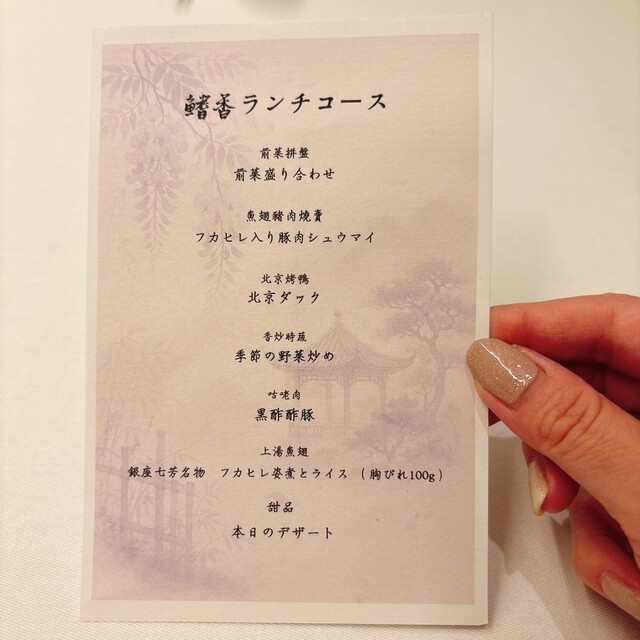 鱶香ランチコース
前菜拼盤
前菜盛り合わせ
魚翅豬肉燒賣
フカヒレ入り豚肉シュウマイ
北京烤鴨
北京ダック
香炒時蔬
季節の野菜炒め
咕咾肉
黒酢酢豚
上湯魚翅
銀座七芳名物 フカヒレ姿煮とライス (胸びれ100g)
甜品
本日のデザート